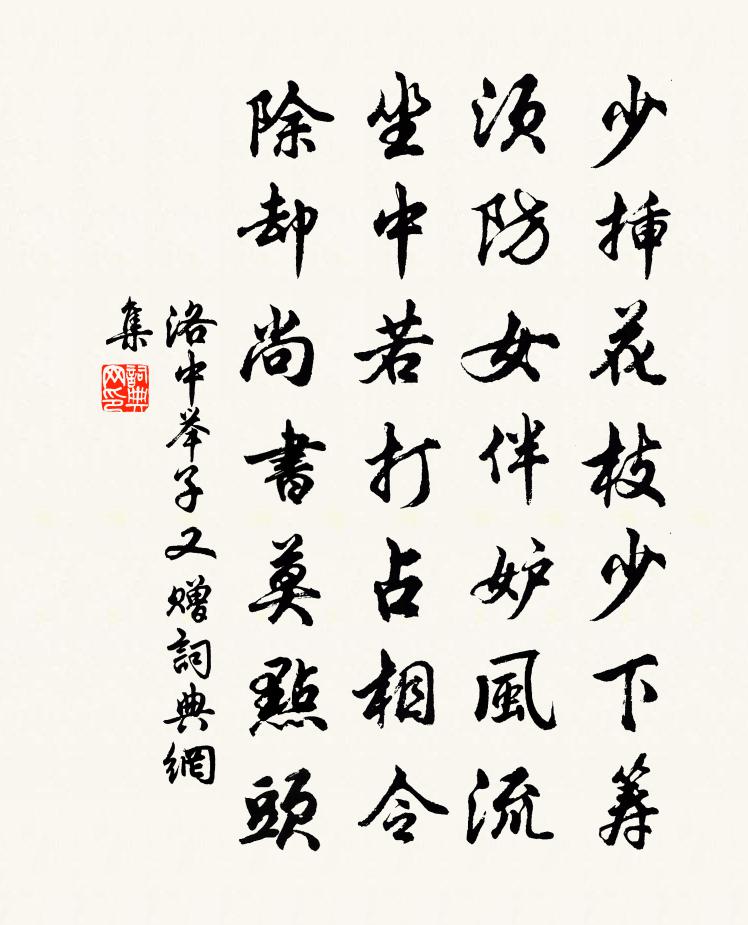 少插花枝少下筹
须防女伴妒風流
坐中若打占相令
除却尚書莫點頭
洛中举子又赠詞典網
集
詞典网印